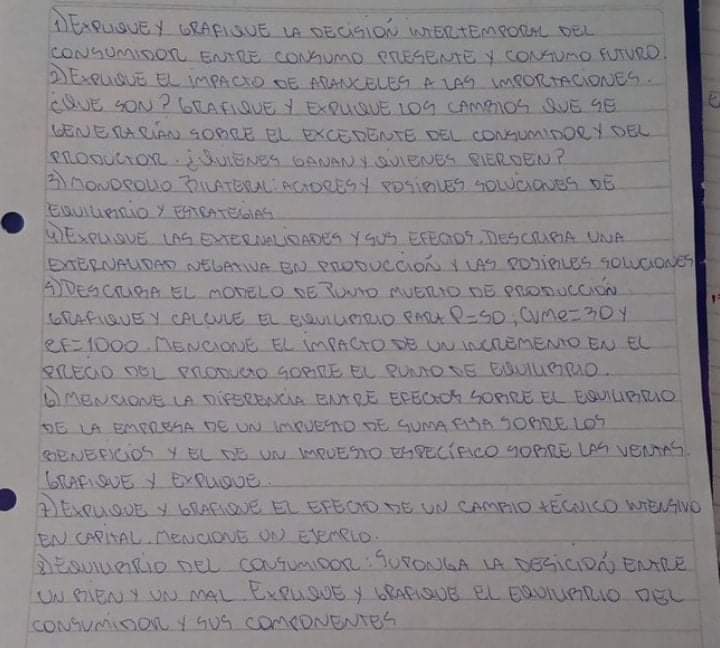 1) EXPLIQUE Y GRAFIQUE LA DECISIÓN INTERTEMPORAL DEL
CONSUMIDOR ENTRE CONSUMO PRESENTE Y CONSUMO FUTURO.
2) EXPLIQUE EL IMPACTO DE ARANCELES A LAS IMPORTACIONES.
¿QUE SON? GRAFIQUE Y EXPLIQUE LOS CAMBIOS QUE SE
GENERARÍAN SOBRE EL EXCEDENTE DEL CONSUMIDOR Y DEL
PRODUCTOR. ¿QUIENES GANAN Y QUIENES PIERDEN?
3) MONOPOLIO BILATERAL: ACTORES Y POSIBLES SOLUCIONES DE
EQUILIBRIO Y ESTRATEGIAS
4) EXPLIQUE LAS EXTERNALIDADES Y SUS EFECTOS. DESCRIBA UNA
EXTERNALIDAD NEGATIVA EN PRODUCCIÓN Y LAS POSIBLES SOLUCIONES
5) DESCRIBA EL MODELO DE PUNTO MUERTO DE PRODUCCIÓN
GRAFIQUE Y CALCULE EL EQUILIBRIO PARA P=50, CVMe=30 Y
CF=1000. MENCIONE EL IMPACTO DE UN INCREMENTO EN EL
PRECIO DEL PRODUCTO SOBRE EL PUNTO DE EQUILIBRIO.
6) MENCIONE LA DIFERENCIA ENTRE EFECTOS SOBRE EL EQUILIBRIO
DE LA EMPRESA DE UN IMPUESTO DE SUMA FIJA SOBRE LOS
BENEFICIOS Y EL DE UN IMPUESTO ESPECÍFICO SOBRE LAS VENTAS.
GRAFIQUE Y EXPLIQUE.
7) EXPLIQUE Y GRAFIQUE EL EFECTO DE UN CAMBIO TÉCNICO INTENSIVO
EN CAPITAL. MENCIONE UN EJEMPLO.
8) EQUILIBRIO DEL CONSUMIDOR: SUPONGA LA DESICIÓN ENTRE
UN BIEN Y UN MAL. EXPLIQUE Y GRAFIQUE EL EQUILIBRIO DEL
CONSUMIDOR Y SUS COMPONENTES